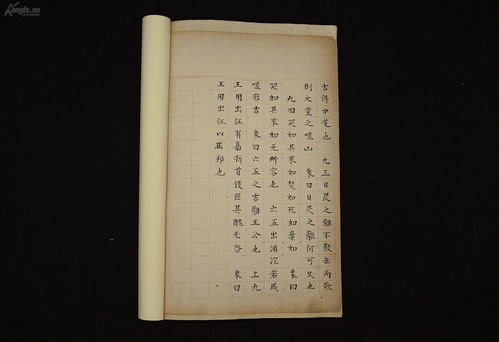 吉得中道也 九三日昃之離不鼓缶而歌
則大耋之嗟凶 象曰日昃之離何可久也
九四突如其來如焚如死如棄如 象曰
突如其來如无所容也 六五出涕沱若戚
嗟若吉 象曰六五之吉離王公也 上九
王用出征有嘉折首獲匪其醜无咎 象曰
王用出征以正邦也